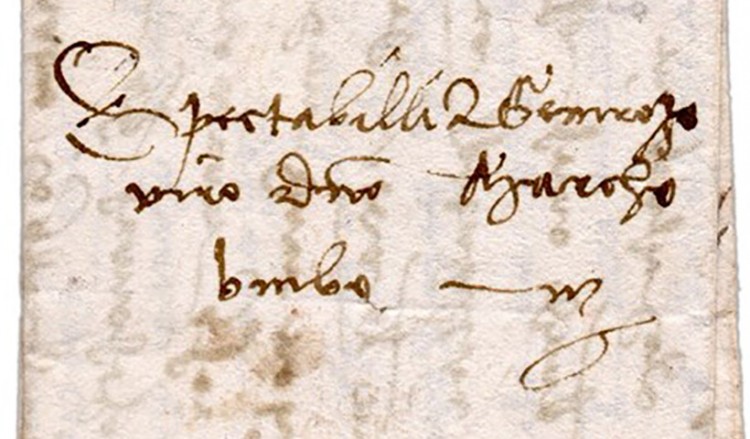 Spectabilli & Generoxo
viro dno Marcho
bembo — in